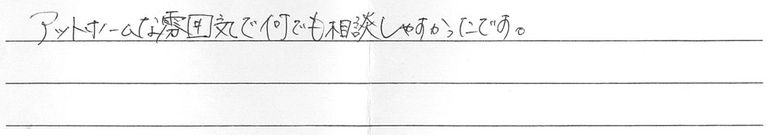 アットホームな雰囲気で何でも相談しやすかったです。